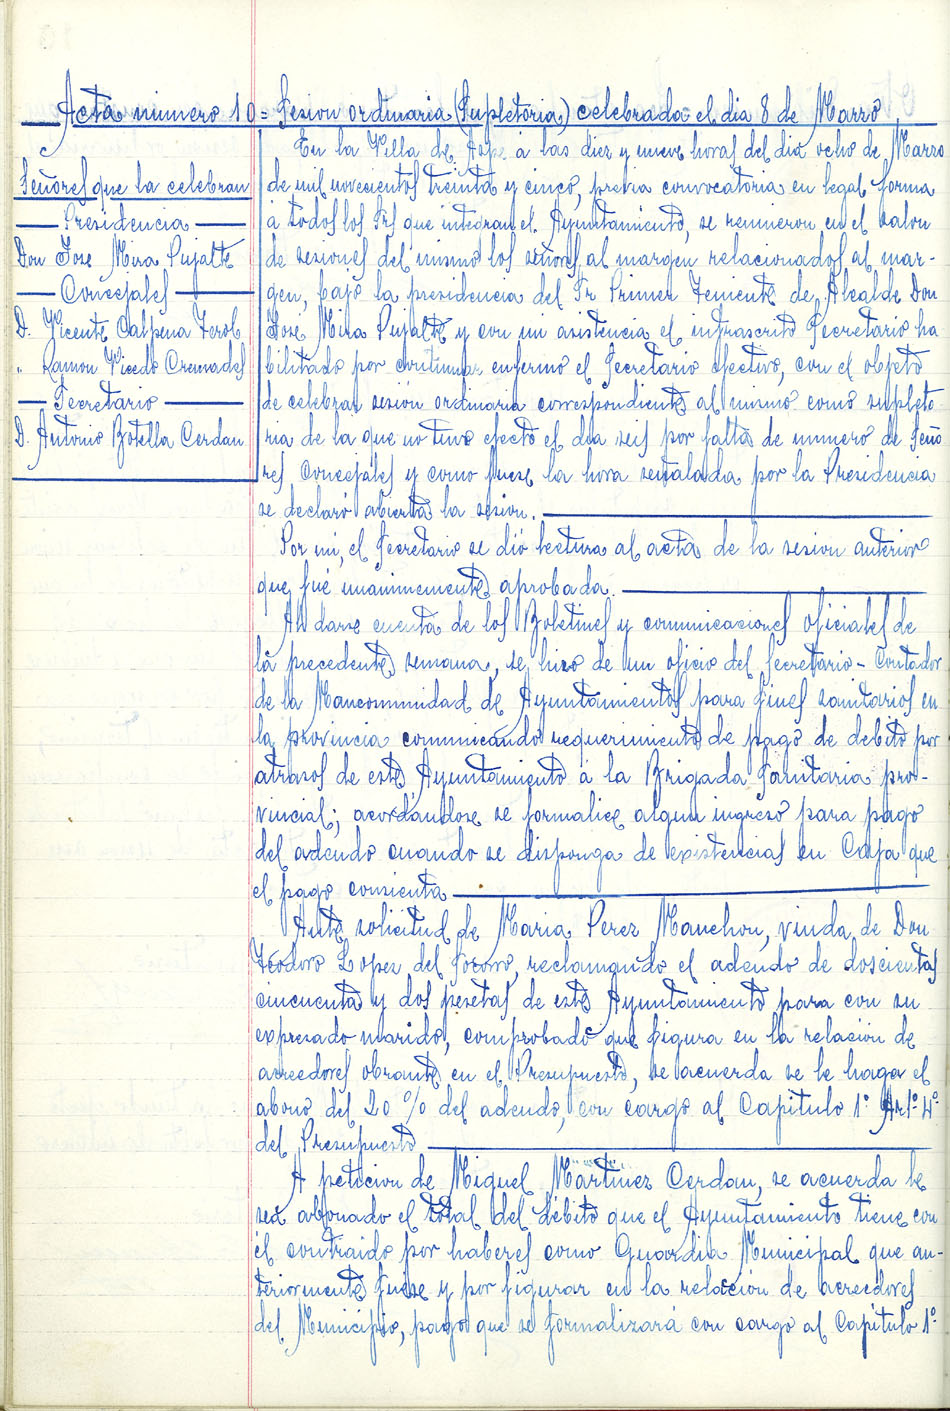 Acta número 10 = Sesion ordinaria (Supletoria) celebrada el dia 8 de Marzo
Señores que la celebran
Presidencia
Don Jose Mira Pujalte
Concejales
D. Vicente Calpena Terol
" Ramon Vicedo Cremades
Secretario
D. Antonio Botella Cerdan
En la Villa de Aspe a las diez y nueve horas del dia ocho de Marzo
de mil novecientos treinta y cinco, previa convocatoria en legal forma
a todos los Srs que integran el Ayuntamiento, se reunieron en el salon
de sesiones del mismo los señores al margen relacionados al mar-
gen, bajo la presidencia del Sr Primer Teniente de Alcalde Don
Jose Mira Pujalte y con mi asistencia el infrascrito Secretario ha
bilitado por continuar enfermo el Secretario efectivo, con el objeto
de celebrar sesión ordinaria correspondiente al mismo como supleto-
ria de la que no tuvo efecto el dia seis por falta de numero de Seño
res Concejales y como fuese la hora señalada por la Presidencia
se declaró abierta la sesion.
Por mi, el Secretario se dió lectura al acta de la sesion anterior
que fué unanimemente aprobada.
Al darse cuenta de los Boletines y comunicaciones oficiales de
la precedente semana, se hizo de un oficio del Secretario-Contador
de la Mancomunidad de Ayuntamientos para fines sanitarios en
la provincia comunicando requerimiento de pago de debito por
atrasos de este Ayuntamiento á la Brigada Sanitaria pro-
vincial; acordándose se formalice algun ingreso para pago
del adeudo cuando se disponga de existencias en Caja que
el pago consienta
Ante solicitud de Maria Perez Manchon, viuda de Don
Teodoro Lopez del Socorro, reclamando el adeudo de doscientas
cincuenta y dos pesetas de este Ayuntamiento para con su
expresado marido, comprobado que figura en la relación de
acreedores obrante en el Presupuesto, se acuerda se le haga el
abono del 20% del adeudo, con cargo al Capitulo 1º Artº 4º
del Presupuesto
A peticion de Miguel Martinez Cerdan, se acuerda le
sea abonado el total del débito que el Ayuntamiento tiene con
él contraido por haberes como Guardia Municipal que an-
teriormente fuese y por figurar en la relación de acreedores
del Municipio, pago que se formalizará con cargo al Capítulo 1º